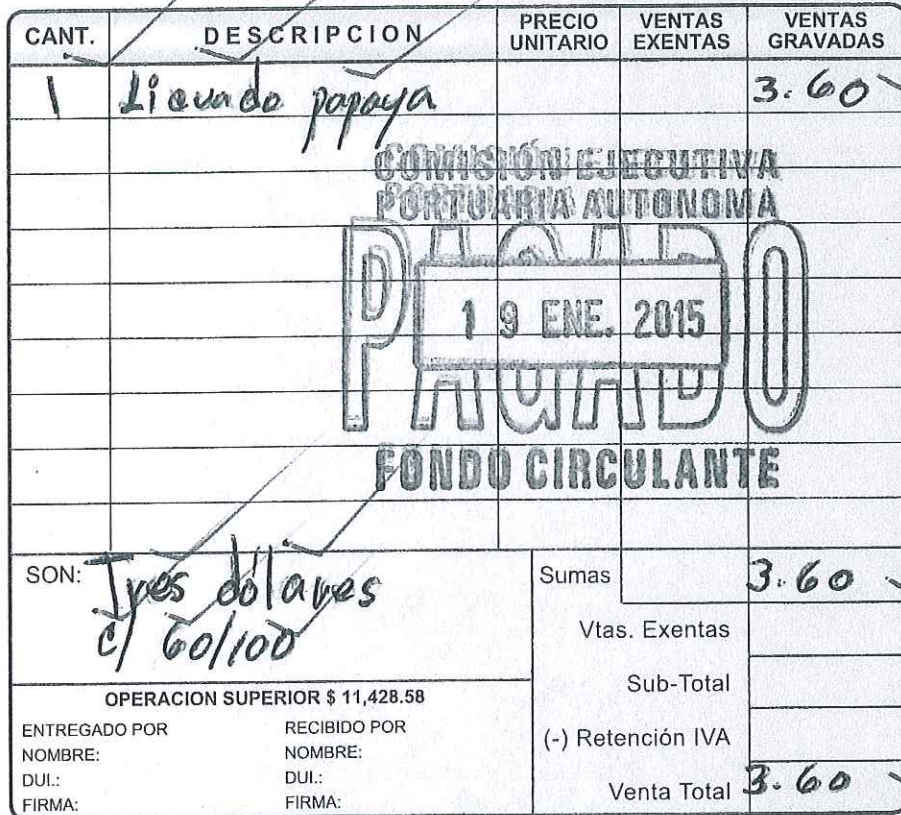 CANT. DESCRIPCION PRECIO UNITARIO VENTAS EXENTAS VENTAS GRAVADAS
1 Licuado papaya 3.60
COMISIÓN EJECUTIVA
PORTUARIA AUTONOMA
PAGADO
19 ENE. 2015
FONDO CIRCULANTE
SON: Tres dolares
c/ 60/100
Sumas 3.60
Vtas. Exentas
Sub-Total
(-) Retención IVA
Venta Total 3.60
OPERACION SUPERIOR $ 11,428.58
ENTREGADO POR RECIBIDO POR
NOMBRE: NOMBRE:
DUI.: DUI.:
FIRMA: FIRMA: